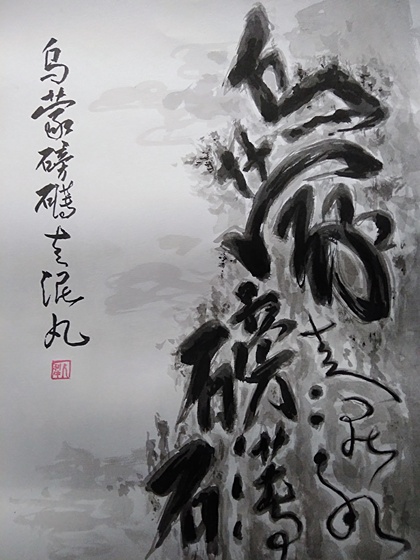 乌蒙磅礴
走泥丸
乌蒙磅礴走泥丸